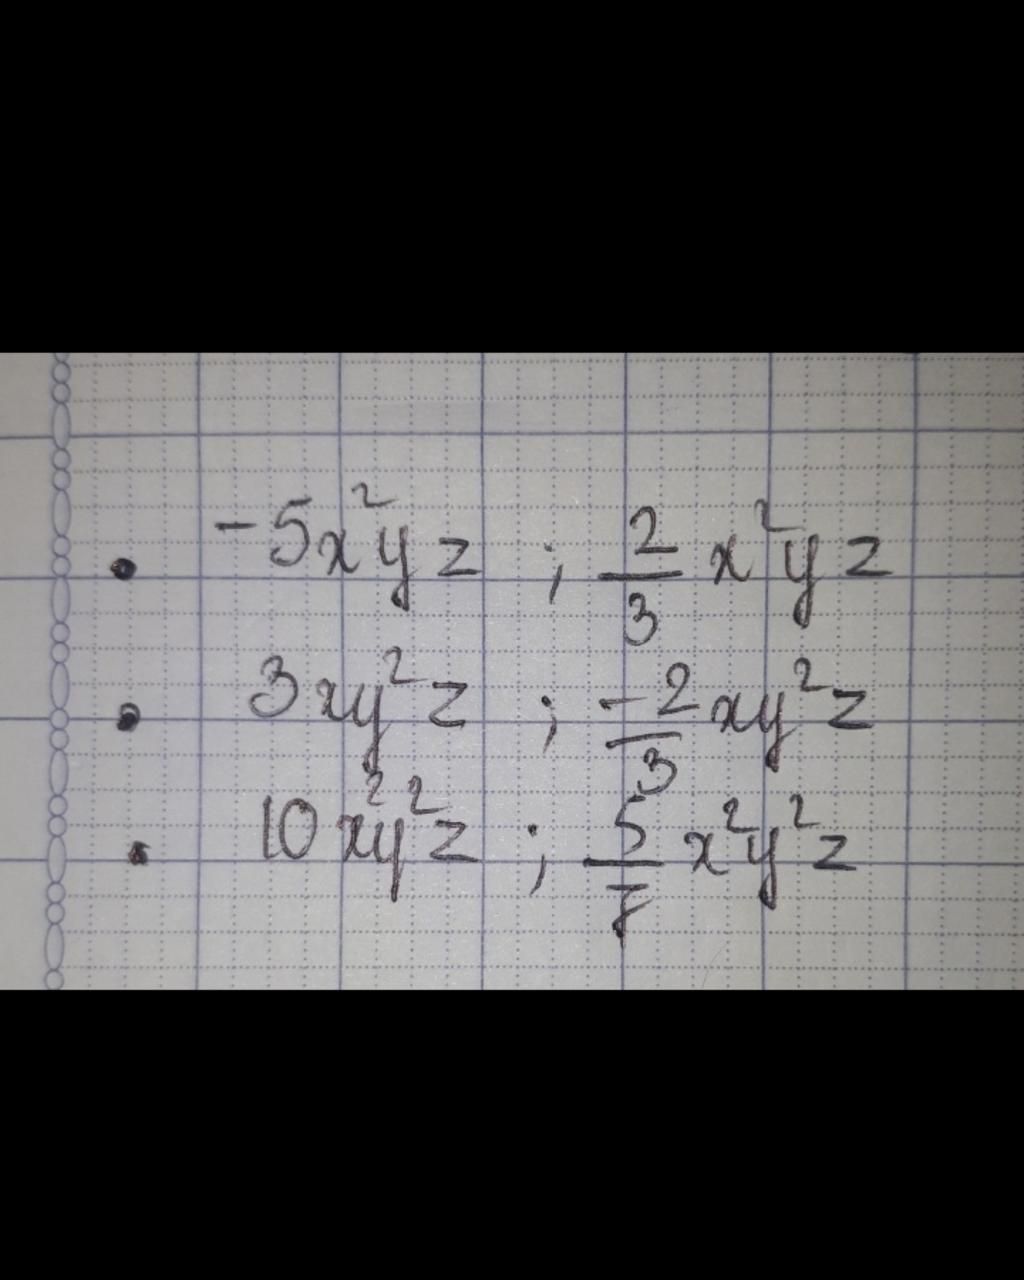 • -5x²yz ; 2/3 x²yz
• 3xy²z ; -2/3 xy²z
• 10x²y²z ; 5/7 x²y²z